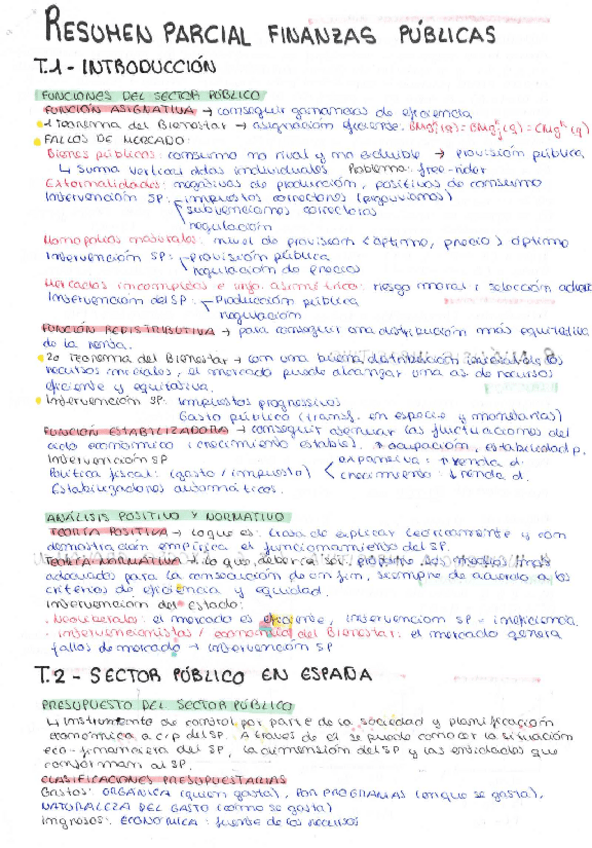 RESUMEN PARCIAL FINANZAS PÚBLICAS
T.1 - INTRODUCCIÓN
FUNCIONES DEL SECTOR PÚBLICO
FUNCIÓN ASIGNATIVA → conseguir ganancias de eficiencia
1 Teorema del Bienestar → asignación eficiente.
FALLOS DE MERCADO:
Bienes públicos: consumo no rival y no excluible → provisión pública
↳ suma vertical ddas individuales Problema: free-rider
Externalidades: negativas de producción, positivas de consumo
Intervención SP: impuestos correctores (pigouvianos)
subvenciones correctoras
regulación
Monopolios naturales: nivel de provisión < óptimo, precio > óptimo
Intervención SP: provisión pública
regulación de precios
Mercados incompletos e info. asimétrica: riesgo moral i selección
Intervención del SP: Producción pública
regulación
FUNCIÓN REDISTRIBUTIVA → para conseguir una distribución más equitativa
de la renta.
2o Teorema del Bienestar → con una buena distribución de los
recursos iniciales, el mercado puede alcanzar una as. de recursos
eficiente y equitativa.
Intervención SP: impuestos progresivos
Gasto público (transf. en especie y monetarias)
FUNCIÓN ESTABILIZADORA → conseguir atenuar las fluctuaciones del
ciclo económico (crecimiento estable). ↑ ocupación, estabilidad p.
Intervención SP
Política fiscal: (gasto / impuesto) < expansiva: ↑ renda d.
crecimiento: ↓ renda d.
Estabilizadores automáticos.
ANÁLISIS POSITIVO Y NORMATIVO
TEORÍA POSITIVA → lo que es: trata de explicar teóricamente y con
demostración empírica el funcionamiento del SP.
TEORÍA NORMATIVA → lo que debería ser: propone los medios más
adecuados para la consecución de un fin, siempre de acuerdo a los
criterios de eficiencia y equidad.
Intervención del estado:
- Neoliberales: el mercado es eficiente, intervención SP = ineficiencia.
- intervencionistas / economía del Bienestar: el mercado genera
fallos de mercado → intervención SP
T.2 - SECTOR PÚBLICO EN ESPAÑA
PRESUPUESTO DEL SECTOR PÚBLICO
↳ Instrumento de control por parte de la sociedad y planificación
económica a c/p del SP. A través de él se puede conocer la situación
eco-financiera del SP, la dimensión del SP y las entidades que
conforman al SP.
CLASIFICACIONES PRESUPUESTARIAS
Gastos: ORGÁNICA (quien gasta), POR PROGRAMAS (en que se gasta),
NATURALEZA DEL GASTO (cómo se gasta)
Ingresos: ECONÓMICA: fuente de los recursos